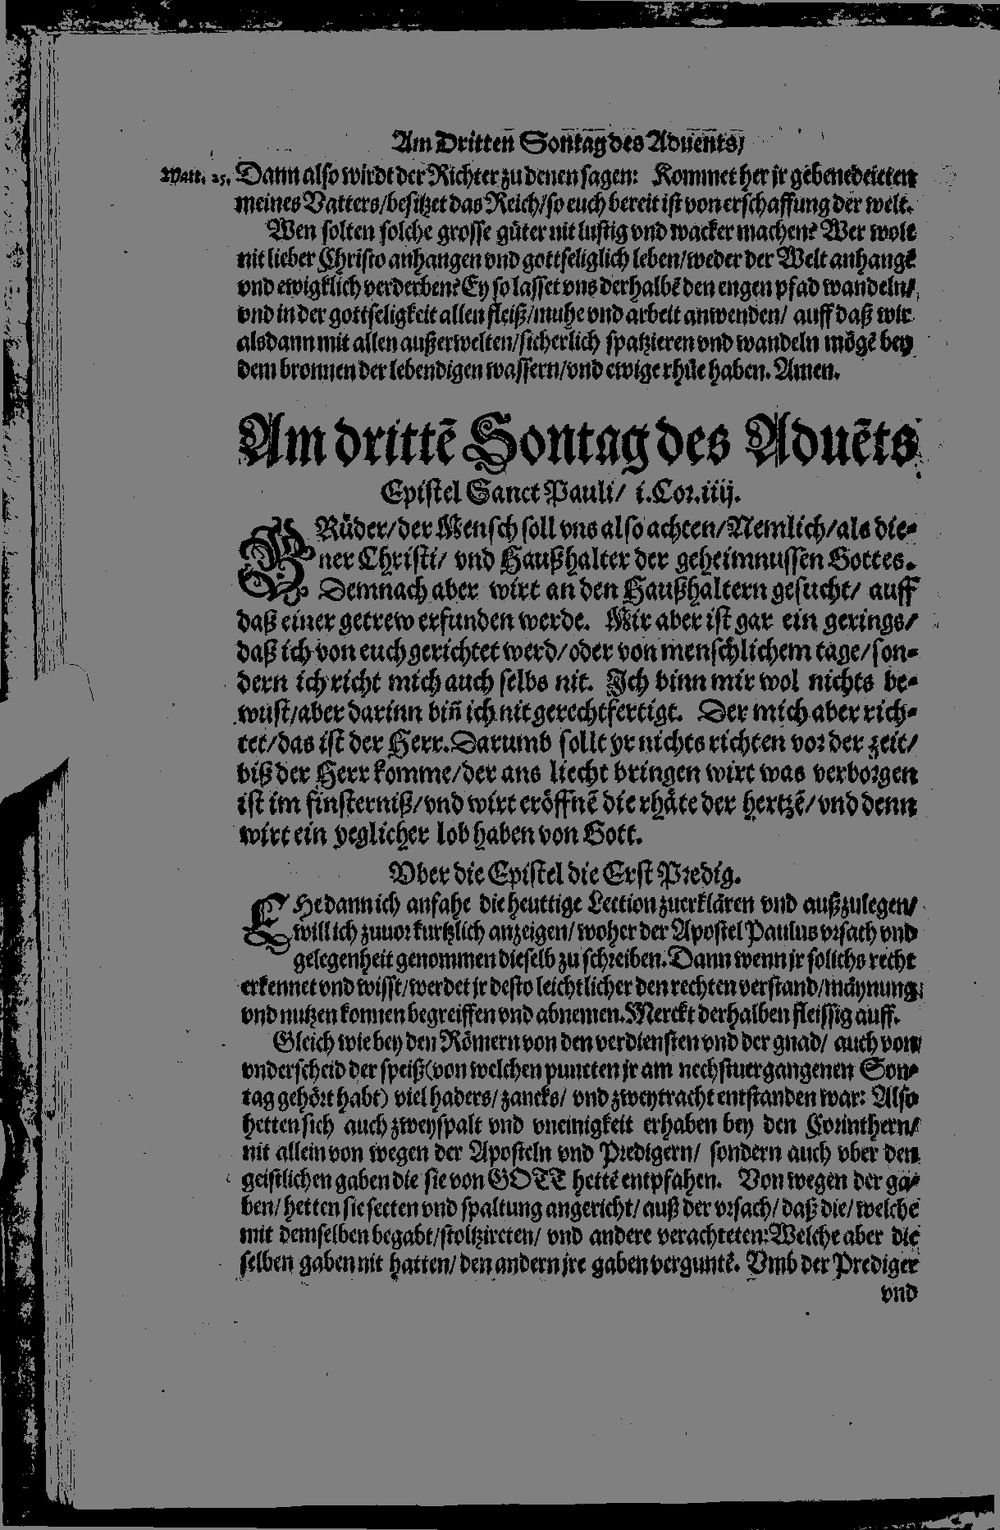 Am Dritten Sontag des Aduents/
Matt. 25. Dann also wirdt der Richter zu denen sagen: Kommet her jr gebenedeieten
meines Vatters/besitzet das Reich/so euch bereit ist von erschaffung der welt.
Wen solten solche grosse güter nit lustig vnd wacker machen? Wer wolt
nit lieber Christo anhangen vnd gottseliglich leben/weder der Welt anhangē
vnd ewigklich verderben? Ey so lasset vns derhalbē den engen pfad wandeln/
vnd in der gottseligkeit allen fleiß/muhe vnd arbeit anwenden/ auff daß wir
alsdann mit allen außerwelten/sicherlich spatzieren vnd wandeln mögē bey
dem bronnen der lebendigen wassern/vnd ewige rhůe haben. Amen.
Am drittē Sontag des Aduēts
Epistel Sanct Pauli/ i. Cor. iiij.
BRüder/der Mensch soll vns also achten/Nemlich/als die-
ner Christi/ vnd Haußhalter der geheimnussen Gottes.
Demnach aber wirt an den Haußhaltern gesucht/ auff
daß einer getrew erfunden werde. Mir aber ist gar ein gerings/
daß ich von euch gerichtet werd/oder von menschlichem tage/son-
dern ich richt mich auch selbs nit. Ich binn mir wol nichts be-
wust/aber darinn biñ ich nit gerechtfertigt. Der mich aber rich-
tet/das ist der Herr. Darumb sollt yr nichts richten vor der zeit/
biß der Herr komme/der ans liecht bringen wirt was verborgen
ist im finsterniß/vnd wirt eröffnē die rhäte der hertzē/vnd denn
wirt ein yeglicher lob haben von Gott.
Vber die Epistel die Erst Predig.
EHe dann ich anfahe die heuttige Lection zuerklären vnd außzulegen/
will ich zuuor kurtzlich anzeigen/woher der Apostel Paulus vrsach vnd
gelegenheit genommen dieselb zu schreiben. Dann wenn jr solichs recht
erkennet vnd wisst/werdet jr desto leichtlicher den rechten verstand/mäynung
vnd nutzen konnen begreiffen vnd abnemen. Merckt derhalben fleissig auff.
Gleich wie bey den Römern von den verdiensten vnd der gnad/ auch von
vnderscheid der speiß (von welchen puncten jr am nechstuergangenen Son-
tag gehört habt) viel haders/ zancks/ vnd zweytracht entstanden war: Also
hetten sich auch zweyspalt vnd vneinigkeit erhaben bey den Corinthern/
nit allein von wegen der Aposteln vnd Predigern/ sondern auch vber den
geistlichen gaben die sie von GOTT hettē entpfahen. Von wegen der ga-
ben/hetten sie secten vnd spaltung angericht/ auß der vrsach/ daß die/welche
mit demselben begabt/stoltzireten/ vnd andere verachteten: Welche aber die
selben gaben nit hatten/ den andern jre gaben verguntē. Vmb der Prediger
vnd